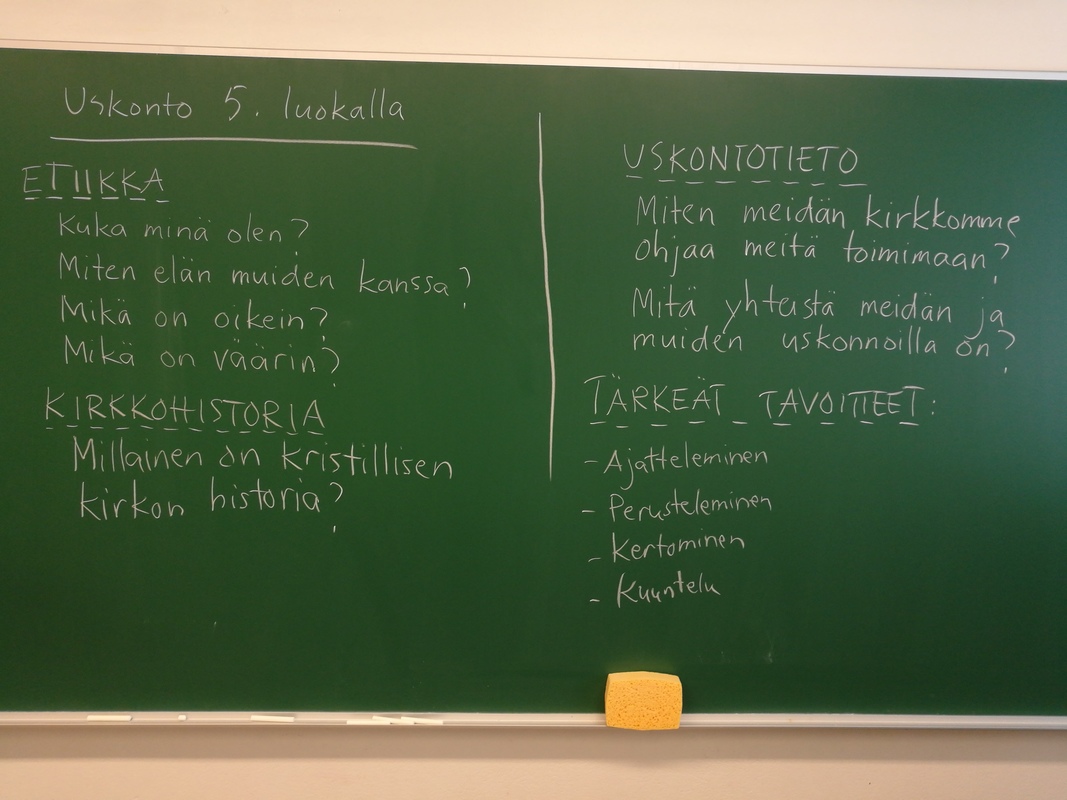 Uskonto 5. luokalla
ETIIKKA
Kuka minä olen?
Miten elän muiden kanssa?
Mikä on oikein?
Mikä on väärin?
KIRKKOHISTORIA
Millainen on kristillisen
kirkon historia?
USKONTOTIETO
Miten meidän kirkkomme
ohjaa meitä toimimaan?
Mitä yhteistä meidän ja
muiden uskonnoilla on?
TÄRKEÄT TAVOITTEET:
- Ajatteleminen
- Perusteleminen
- Kertominen
- Kuuntelu